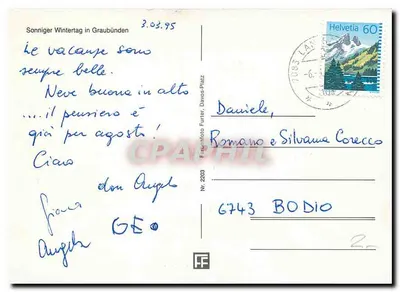 Sonniger Wintertag in Graubünden
3.03.95
Le vacanze sono
sempre belle.
Neve buona in alto
... il pensiero è
già per agosto!
Ciao
don Angelo
GEO
Angela
Nr. 2203
Helvetia 60
Daniele,
Romano e Silvana Corecco
6743 BODIO
2.-
CPARAMA